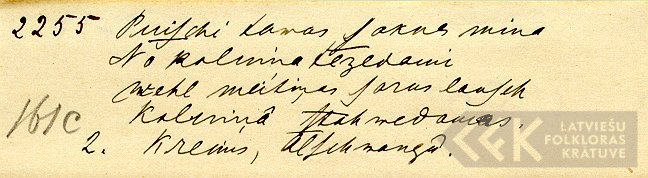 2255 Puischi tawas saknes mina
No kalniņa tezedami
wehl meitiņas sarus lausch
161c Kalniņâ stahwedamas.
2. Kreims, Alschwangâ.
LATVIEŠU
FOLKLORAS
KRĀTUVE